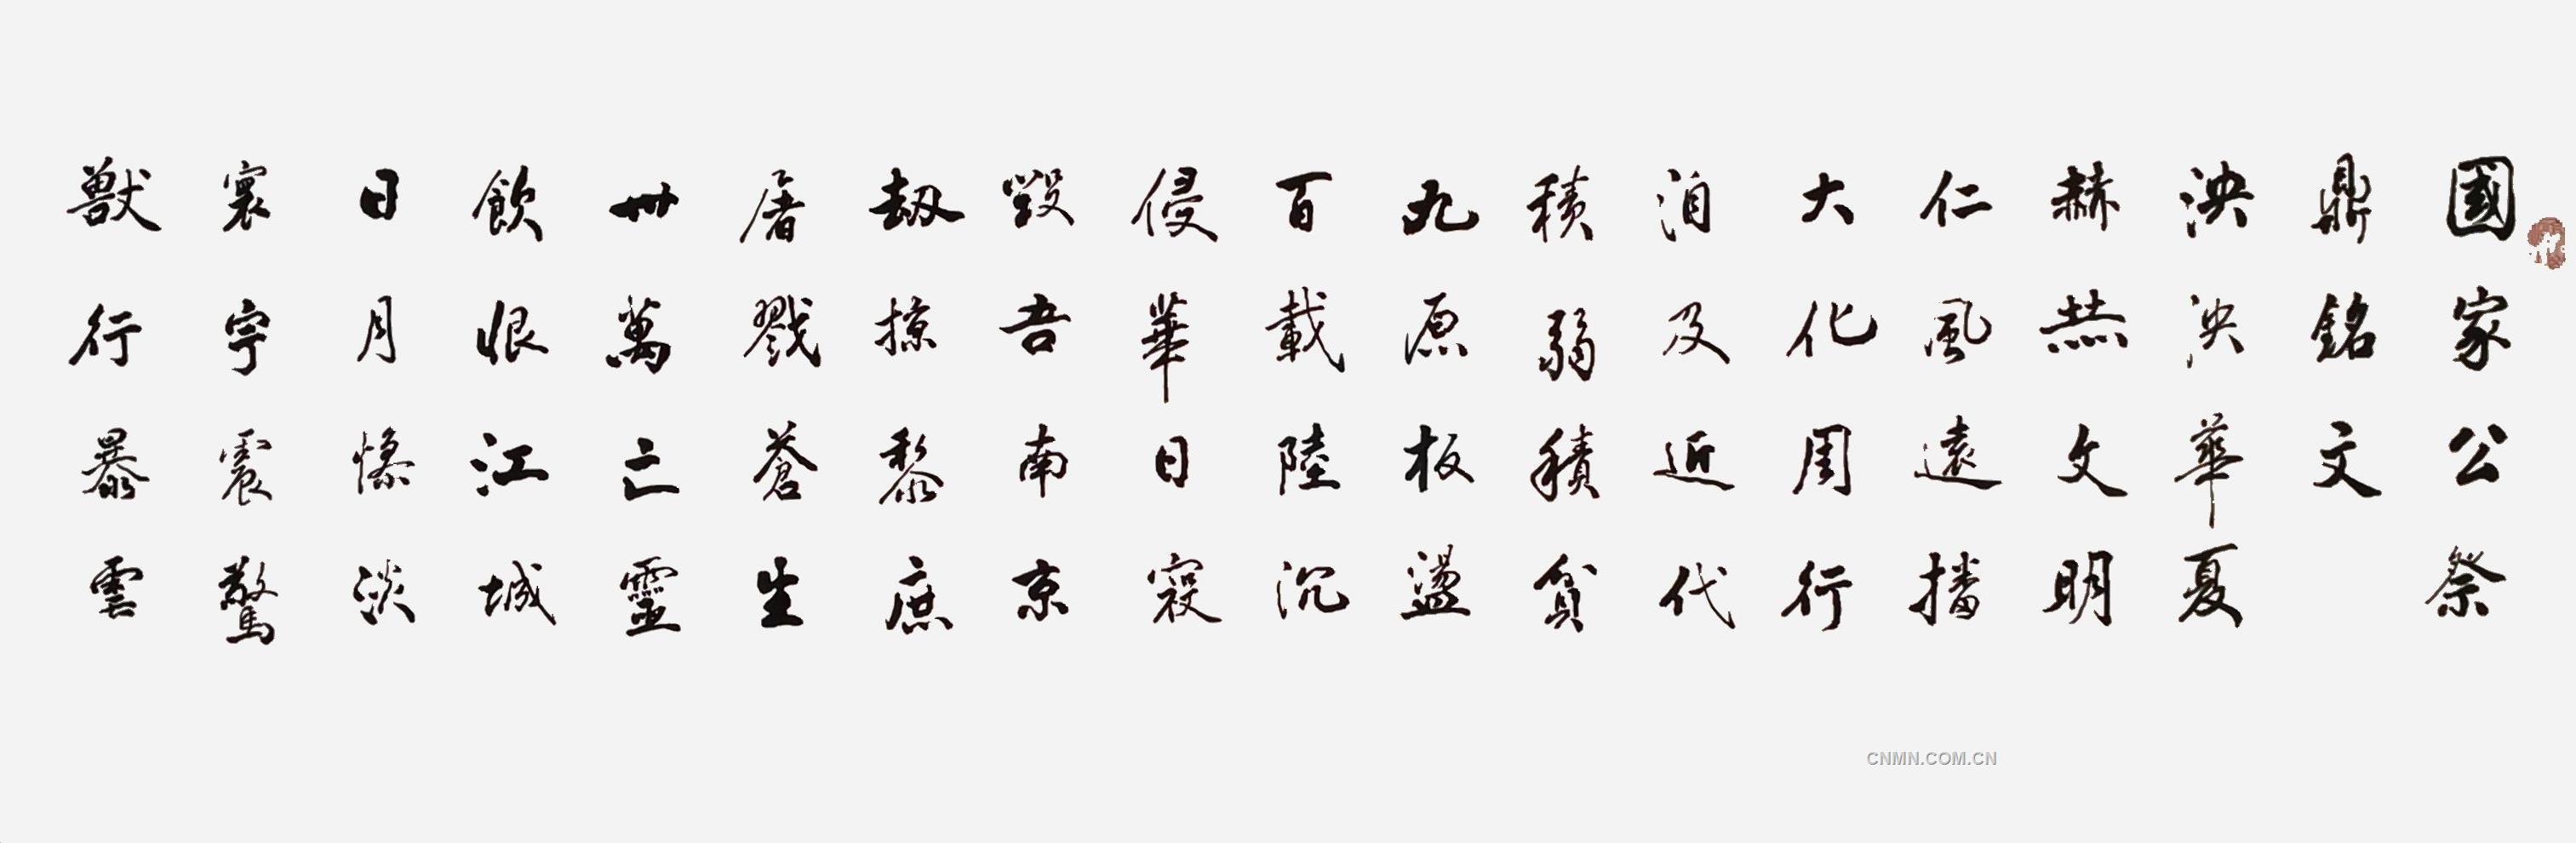 國家公祭
鼎銘文
泱泱華夏
赫赫文明
仁風遠播
大化周行
洎及近代
積弱積貧
九原板盪
百載陸沉
侵華日寇
毀吾南京
劫掠黎庶
屠戮蒼生
卅萬亡靈
飲恨江城
日月慘淡
寰宇震驚
獸行暴
雲
CNMN.COM.CN